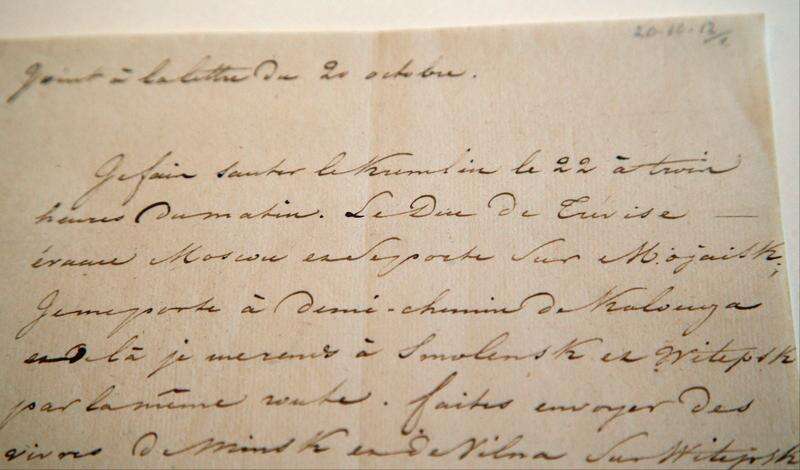 20-10-12/1.
Joint à la lettre du 20 octobre.
Je fais sauter le Kremlin le 22 à trois
heures du matin. Le Duc de Trévise —
évacue Moscou et se porte sur Mojaisk;
Je me porte à demi-chemin de Kalouga
et de là je me rends à Smolensk et Witepsk
par la même route. faites envoyer des
vivres de Minsk et de Vilna sur Witepsk